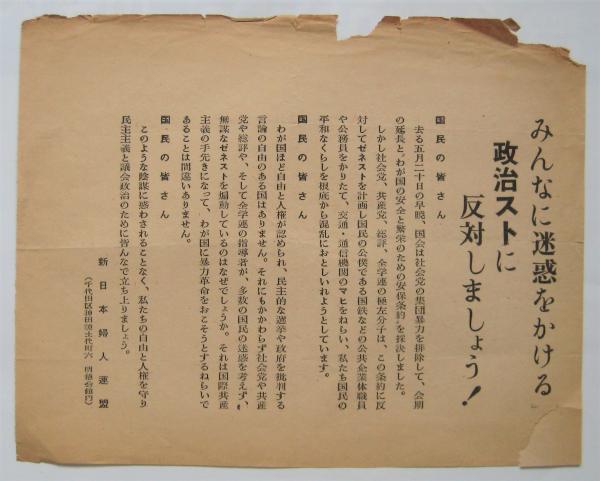 みんなに迷惑をかける
政治ストに
反対しましょう!
国民の皆さん
去る五月二十日の早暁、国会は社会党の集団暴力を排除して、会期
の延長と"わが国の安全と繁栄のための安保条約"を採決しました。
しかし社会党、共産党、総評、全学連の極左分子は、この条約に反
対してゼネストを計画し国民の公僕である国鉄などの公共企業体職員
や公務員をかりたて、交通・通信機関のマヒをねらい、私たち国民の
平和なくらしを根底から混乱におとしいれようとしています。
国民の皆さん
わが国ほど自由と人権が認められ、民主的な選挙や政府を批判する
言論の自由のある国はありません。それにもかかわらず社会党や共産
党や総評や、そして全学連の指導者が、多数の国民の迷惑を考えず、
無謀なゼネストを煽動しているのはなぜでしょうか。それは国際共産
主義の手先きになって、わが国に暴力革命をおこそうとするねらいで
あることは間違いありません。
国民の皆さん
このような陰謀に惑わされることなく、私たちの自由と人権を守り
民主主義と議会政治のために皆んなで立ち上りましょう。
新日本婦人連盟
(千代田区神田美土代町六 明治会館内)